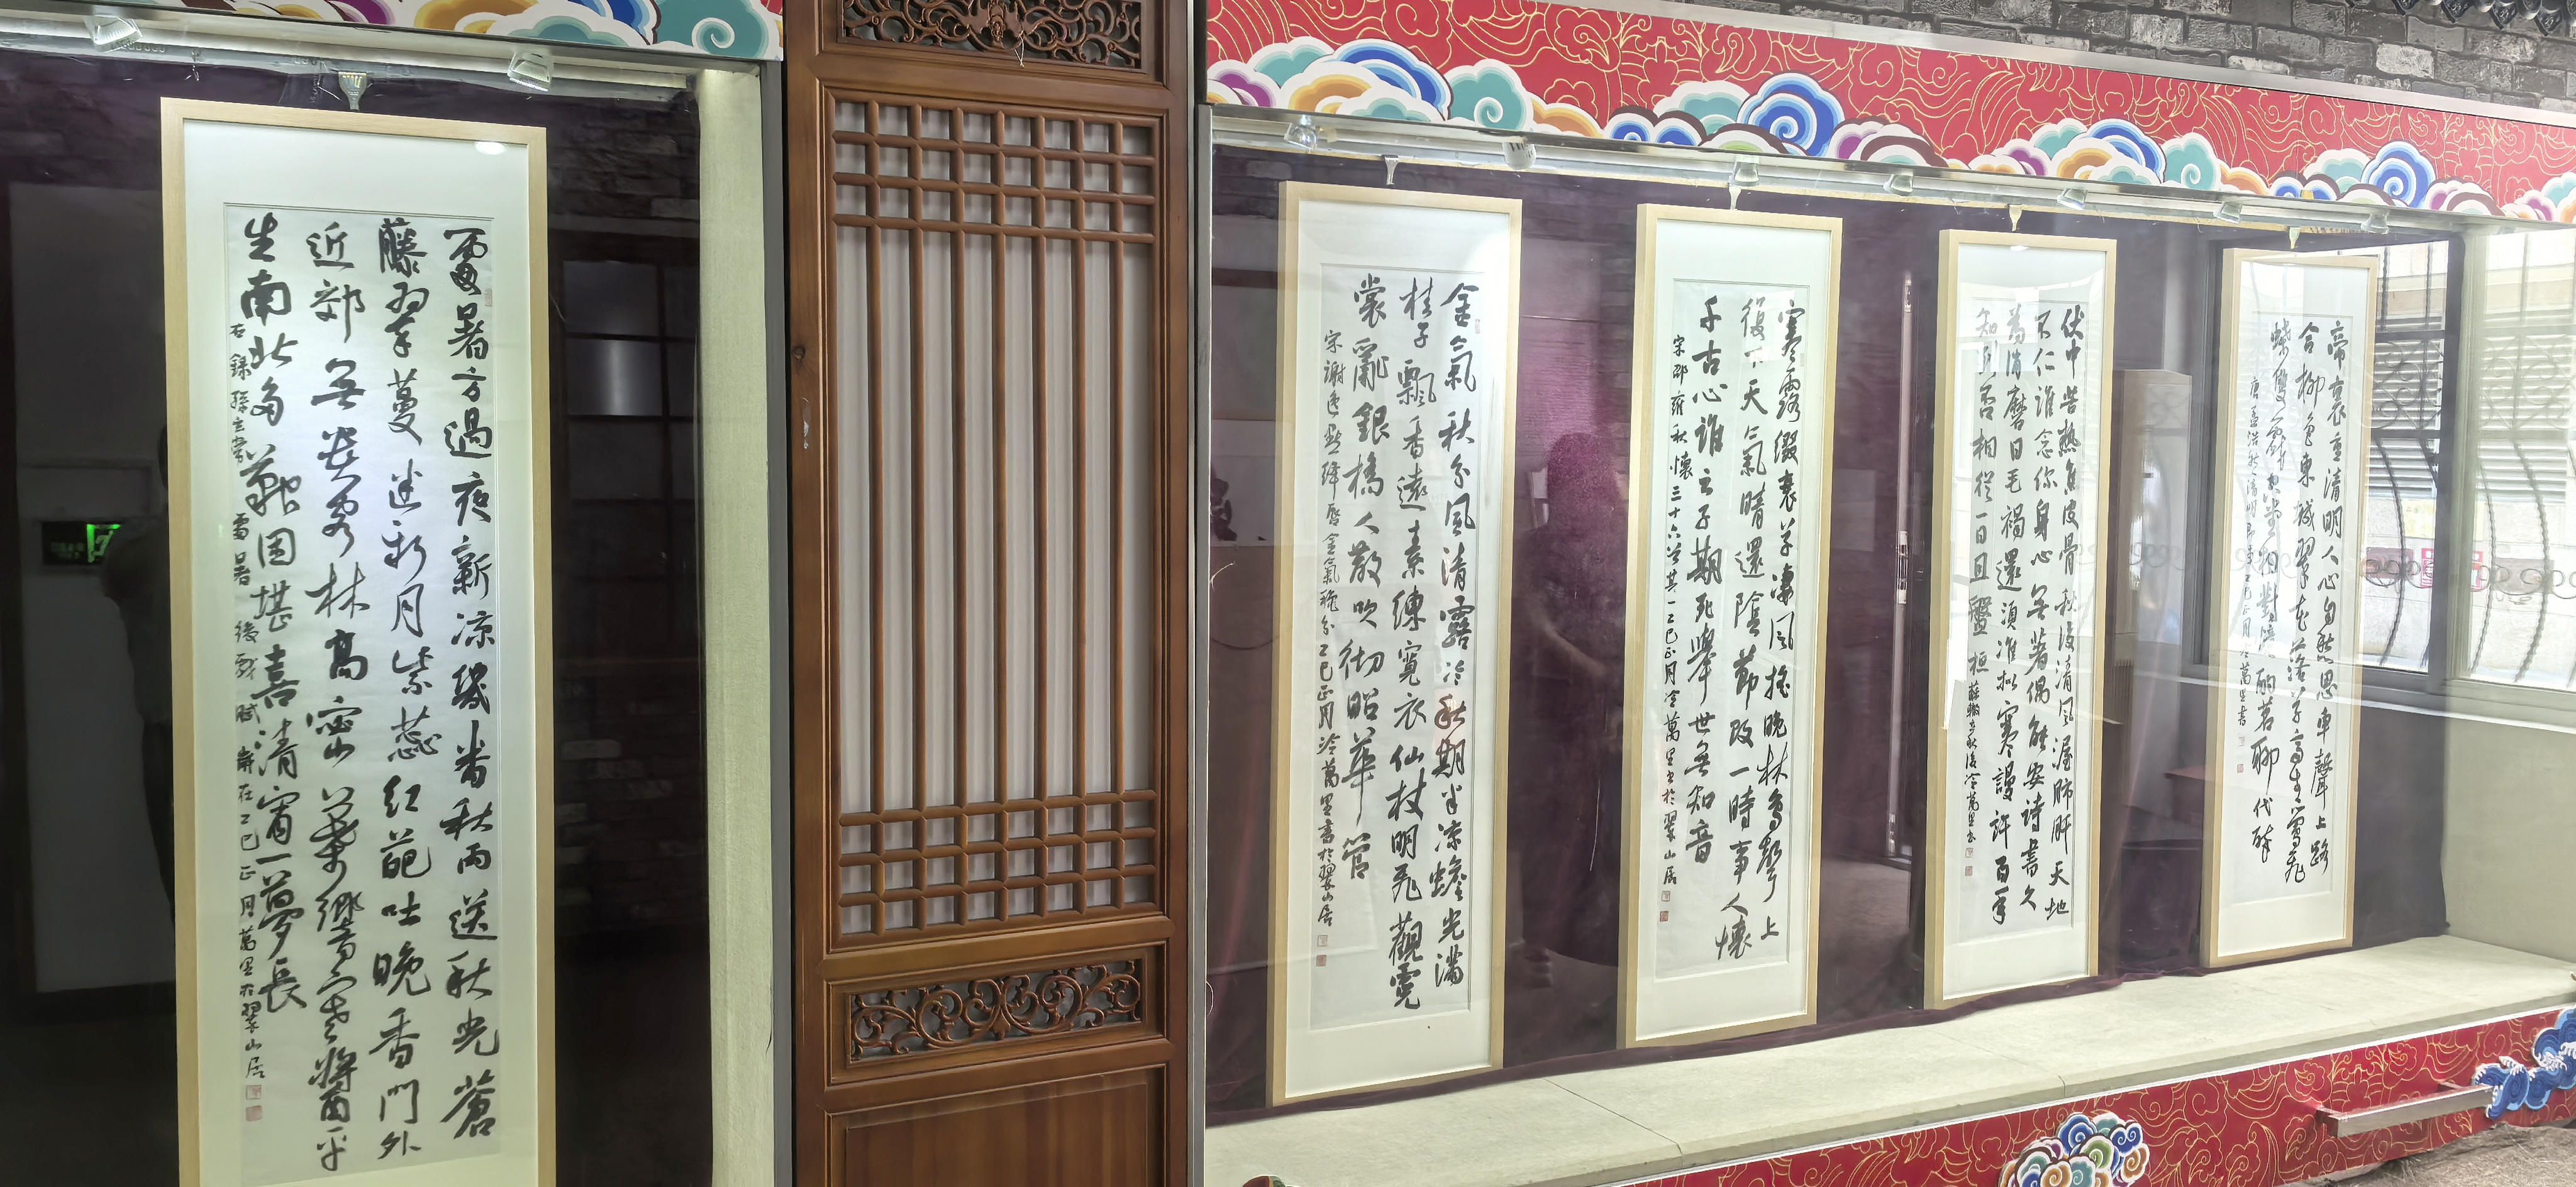 處暑方過夜新涼幾番秋雨送秋光蒼
藤翠蔓迷新月紫蕊紅葩吐晚香門外
近郊無林高密葉響寒螿平
生南北多艱困堪喜清宵一夢長
右錄孫玄常處暑後戲賦歲在乙巳正月萬里於翠山居
金氣秋分風清露冷秋期半涼蟾光滿
桂子飄香遠素練寬衣仙杖明飛觀霓
裳亂銀橋人散吹徹昭華管
宋謝逸點絳唇金氣秋分乙巳正月冷萬里書於翠山居
寒露綴衰草淒風搖晚林鳥聲上
復下天氣晴還陰節改一時事人懷
千古心誰云子期死舉世無知音
宋邵雍秋懷三十六首其一乙巳正月冷萬里書於翠山居
伏中苦熱焦皮骨秋後清風濯肺肝天地
不仁誰念你身心無著偶能安詩書久
為消磨日毛褐還須准擬寒謾許百年
知到否相從一日且盤桓
蘇轍立秋後冷萬里書
帝里重清明人心自愁思車聲上路
合柳色東城翠花落草齊生鶯飛
蝶雙戲空堂坐相對酌茗聊代醉
唐孟浩然清明即事乙巳正月冷萬里書